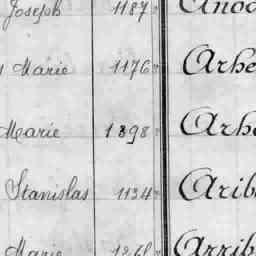 Joseph 1187
Marie 1176 Arhe
Marie 1898 Arh
Stanislas 1134 Arib
Marie Arrib